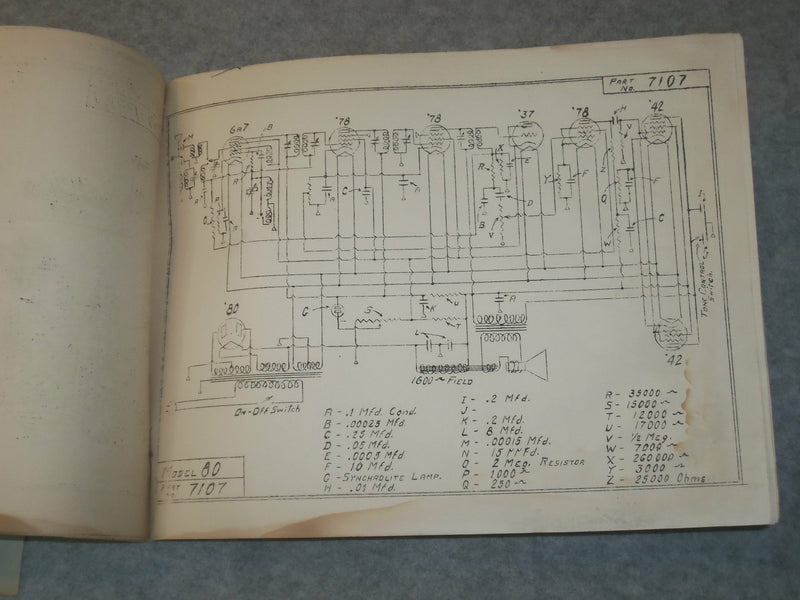 PART NO. 7107
6A7
'78
'78
'37
'78
'42
'80
'42
TONE CONTROL SWITCH
1600~ FIELD
ON-OFF SWITCH
A - .1 MFD. COND.
B - .00025 MFD.
C - .25 MFD.
D - .05 MFD.
F - 10 MFD.
G - SYNCHROLITE LAMP.
H - .01 MFD.
I - .2 MFD.
J -
K - .2 MFD.
L - 8 MFD.
M - .00015 MFD.
N - 15 MMFD.
O - 2 MEG. RESISTOR
P - 1000~
Q - 250~
R - 35000~
S - 15000~
T - 12000~
U - 17000~
V - 1/2 MEG.
W - 7000~
X - 260000~
Y - 3000~
Z - 25000 OHMS.
MODEL 80
PART NO. 7107